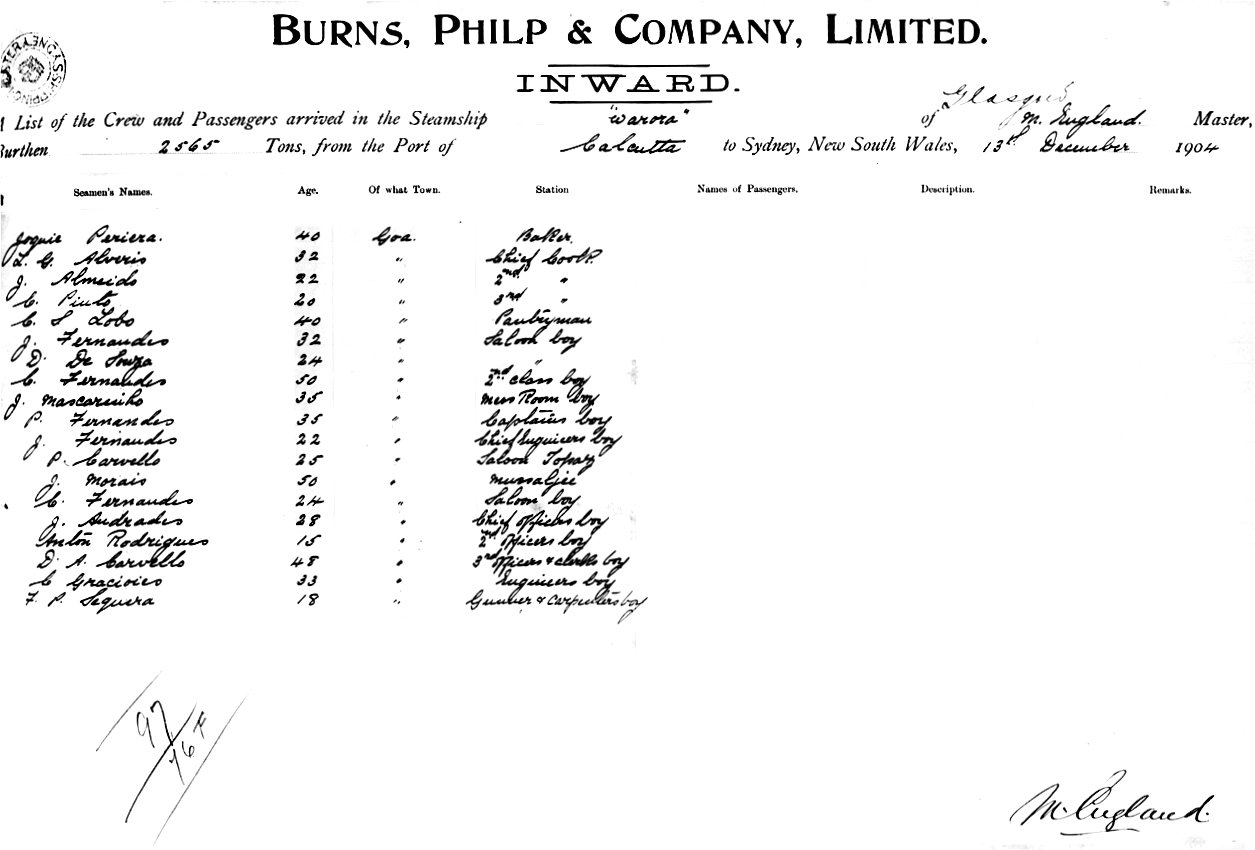 BURNS, PHILP & COMPANY, LIMITED.
INWARD.
Glasgow
List of the Crew and Passengers arrived in the Steamship "Warora" of M. England. Master,
Burthen 2565 Tons, from the Port of Calcutta to Sydney, New South Wales, 13th December 1904
Seamen's Names. Age. Of what Town. Station Names of Passengers. Description. Remarks.
Joquie Periera. 40 Goa. Baker.
L. G. Alveris 32 " Chief Cook.
J. Almeido 22 " 2nd "
C. Pinto 20 " 3rd "
C. S Lobo 40 " Pantryman
J. Fernandes 32 " Saloon boy
D. De Souza 24 " "
C. Fernandes 50 " 2nd class boy
J. Mascarinho 35 " Mess Room boy
P. Fernandes 35 " Captains boy
J. Fernandes 22 " Chief Engineers boy
P. Carvello 25 " Saloon Topaz
J. Morais 50 " Mussaljee
C. Fernandes 24 " Saloon boy
J. Andrades 28 " Chief officers boy
Anton Rodrigues 15 " 2nd officers boy
D. A. Carvello 48 " 3rd officers & clerks boy
C Gracioies 33 " Engineers boy
F. P. Sequera 18 " Gunner & Carpenters boy
97
M. England.